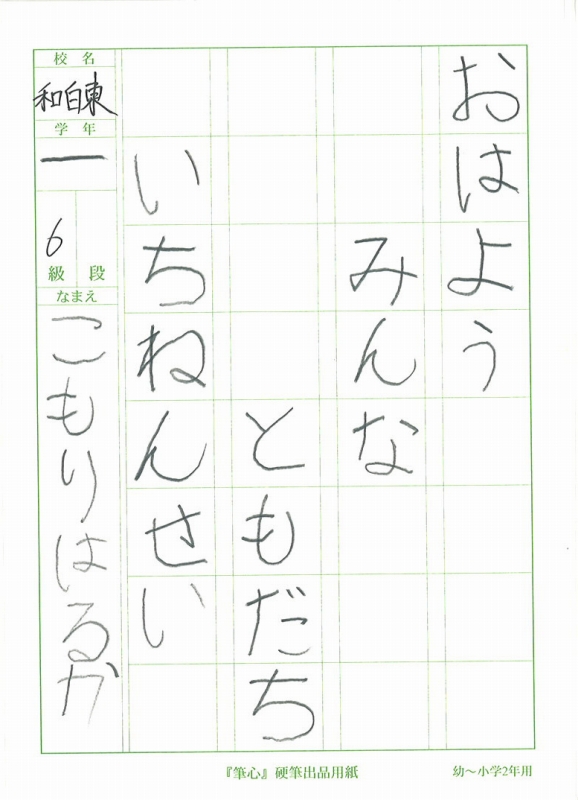 おはよう
みんな
ともだち
いちねんせい
校名
和白東
学年
一
6
級 段
なまえ
こもりはるか
『筆心』硬筆出品用紙
幼〜小学2年用